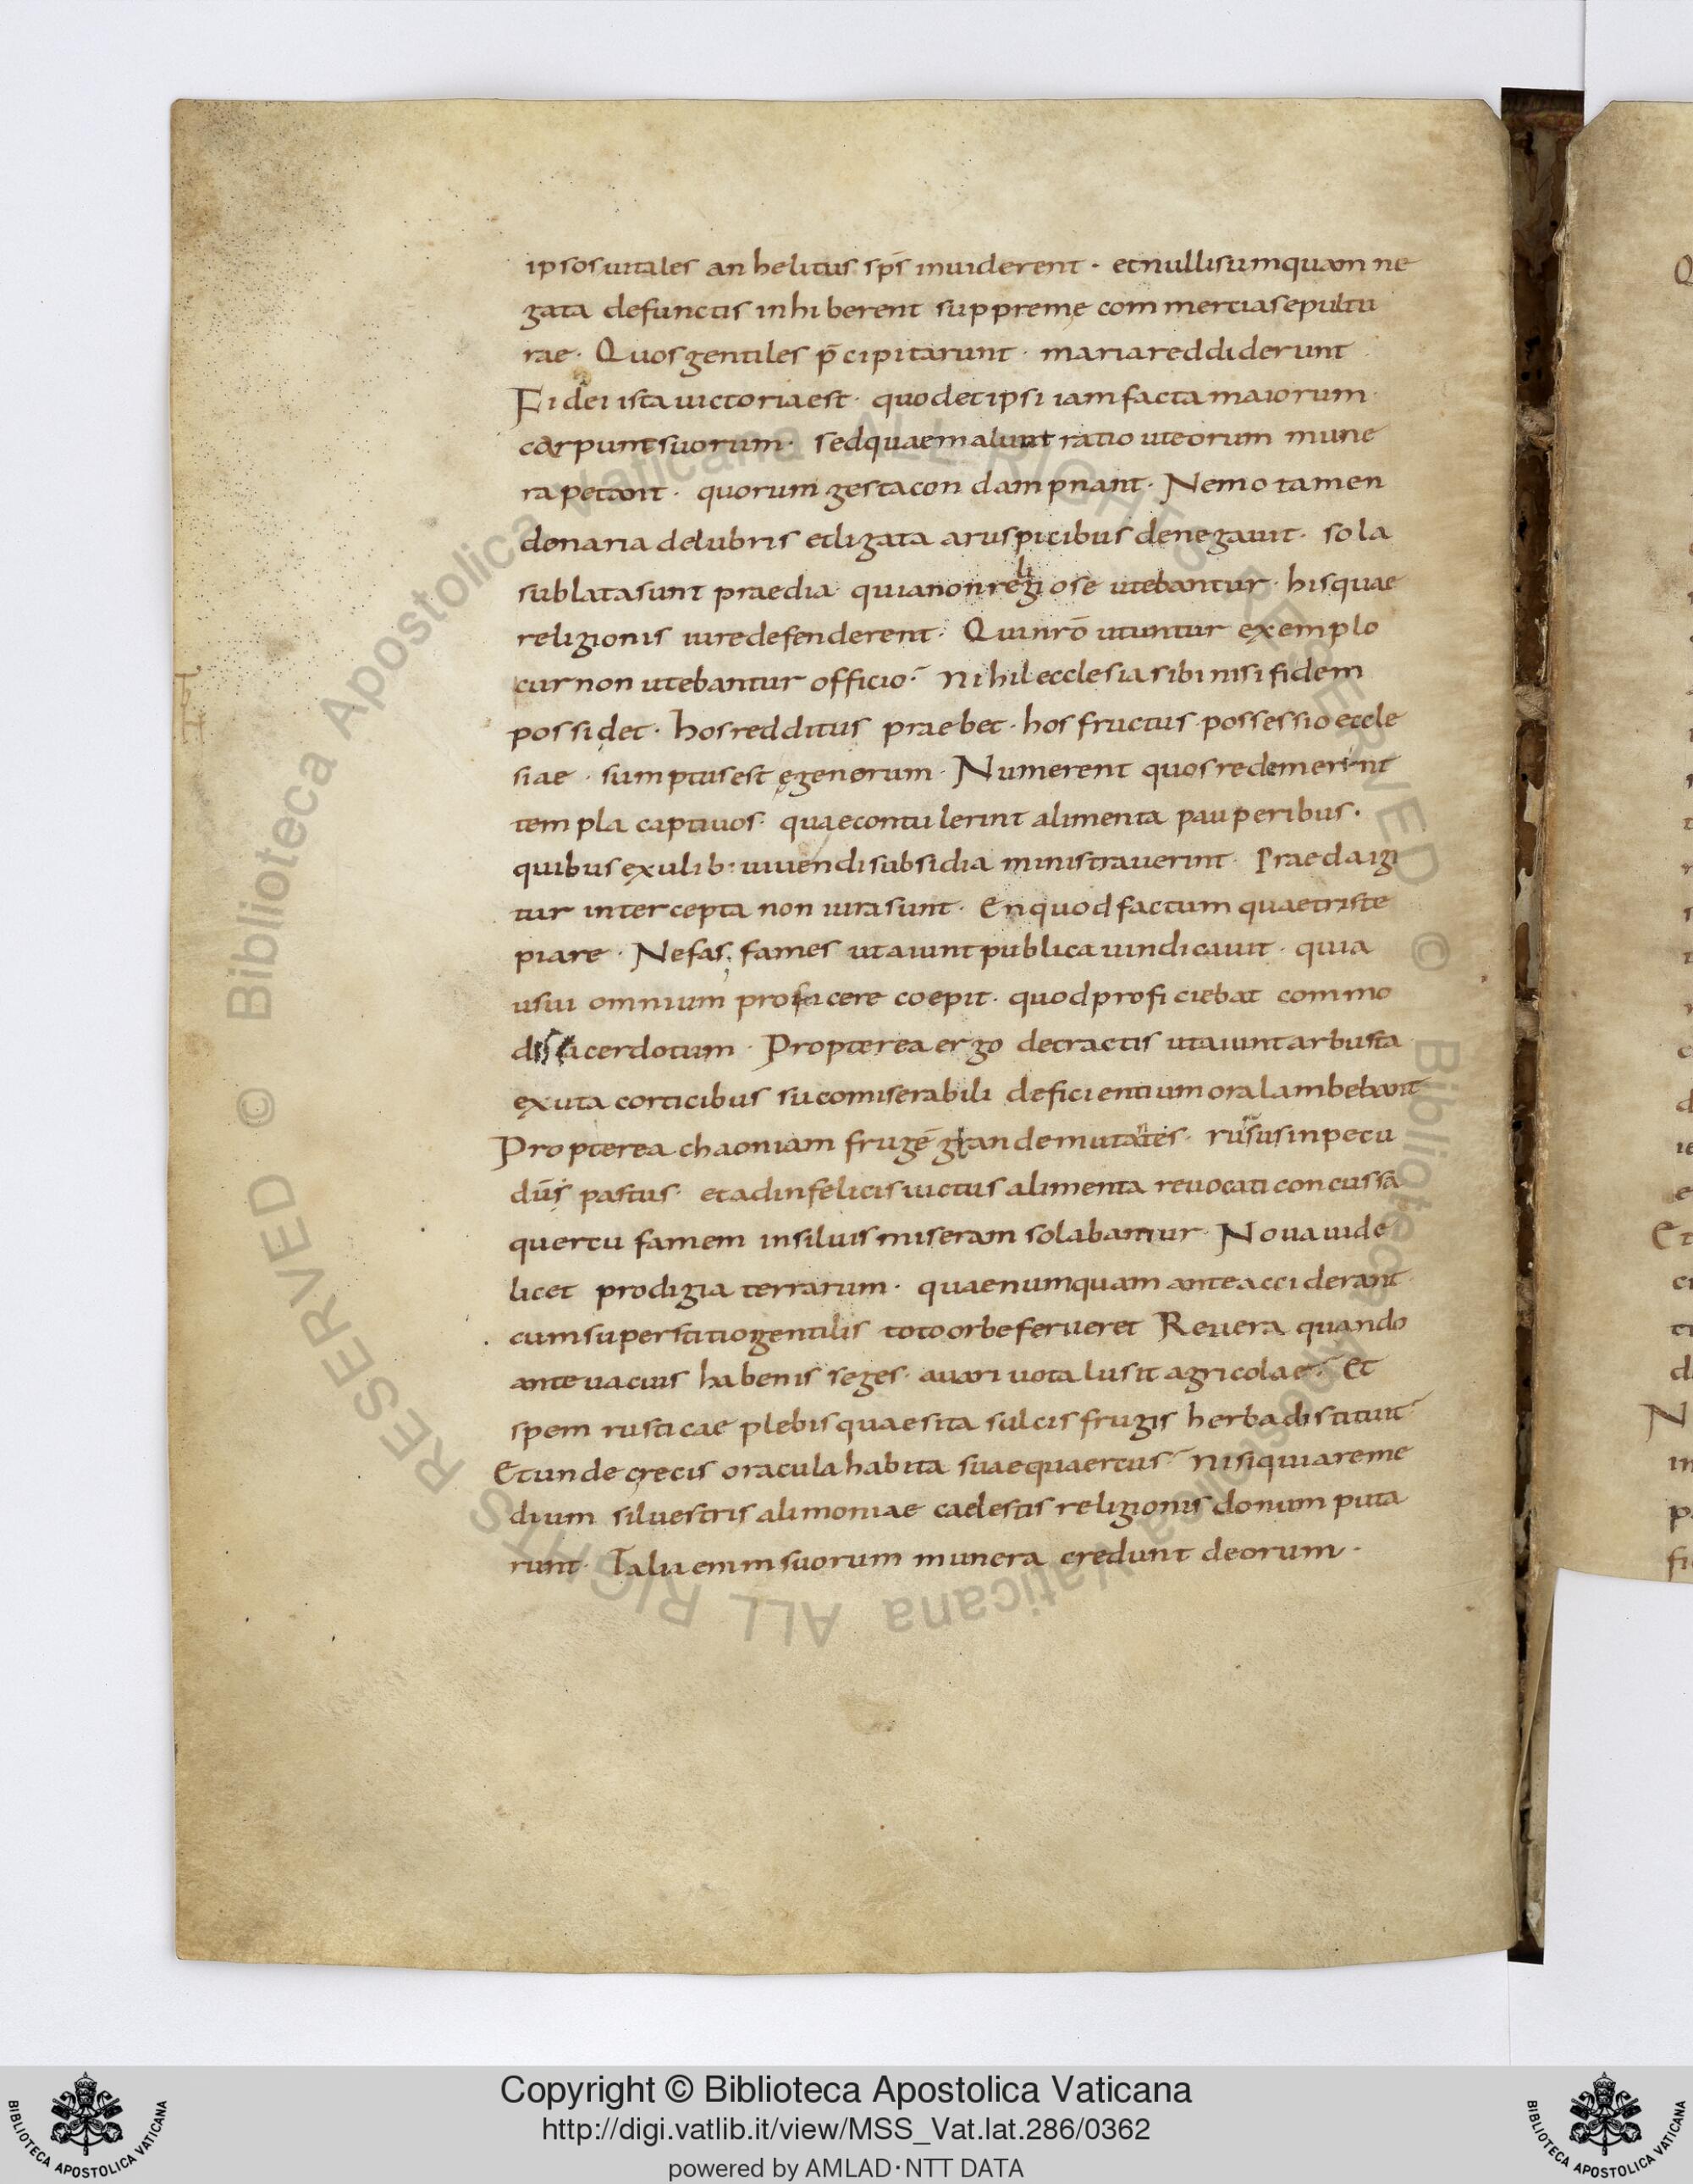 ipsos uitales anhelitus sps̄ inuiderent · et nullis umquam ne
gata defunctis inhiberent suppreme commertia sepultu
rae · Quos gentiles p̄cipitarunt · maria reddiderunt
Fidei ista uictoria est · quod et ipsi iam facta maiorum
carpunt suorum · sed quae malunt ratio ut eorum mune
ra petant · quorum gesta condampnant · Nemo tamen
donaria delubris et ligata aruspicibus denegauit · sola
sublata sunt praedia quia non religiose utebantur · his quae
religionis iure defenderent · Qui nr̄o utuntur exemplo
cur non utebantur officio · Nihil ecclesia sibi nisi fidem
possidet · hos redditus praebet · hos fructus possessio eccle
siae · sumptus est egenorum · Numerent quos redemerint
templa captiuos · quae contulerint alimenta pauperibus ·
quibus exulib: uiuendi subsidia ministrauerint · Praeda igi
tur intercepta non iura sunt · En quod factum quae triste
piare · Nefas; fames ut aiunt publica uindicauit · quia
usui omnium proficere coepit · quod proficiebat commo
dis sacerdotum · Propterea ergo detractis ut aiunt arbusta
exuta corticibus suco miserabili deficientium ora lambebant
Propterea chaoniam frugē glande mutantes · rursus in pecu
dūs pastus · et ad infelicis uictus alimenta reuocati concussa
quercu famem in siluis miseram solabantur · Noua uide
licet prodigia terrarum · quae numquam ante acciderant
cum superstitio gentilis toto orbe ferueret Reuera quando
ante uacuis habenis seges · auari uota lusit agricolae · Et
spem rusticae plebis quaesita sulcis frugis herba distituit
Et unde crecis oracula habita suae quaercus Nisi quia reme
dium siluestris alimoniae caelestis religionis donum puta
runt · Talia enim suorum munera credunt deorum ·
© Biblioteca Apostolica Vaticana ALL RIGHTS RESERVED © Biblioteca Apostolica Vaticana ALL RIGHTS RESERVED
Copyright © Biblioteca Apostolica Vaticana
http://digi.vatlib.it/view/MSS_Vat.lat.286/0362
powered by AMLAD·NTT DATA
BIBLIOTECA APOSTOLICA VATICANA
BIBLIOTECA APOSTOLICA VATICANA